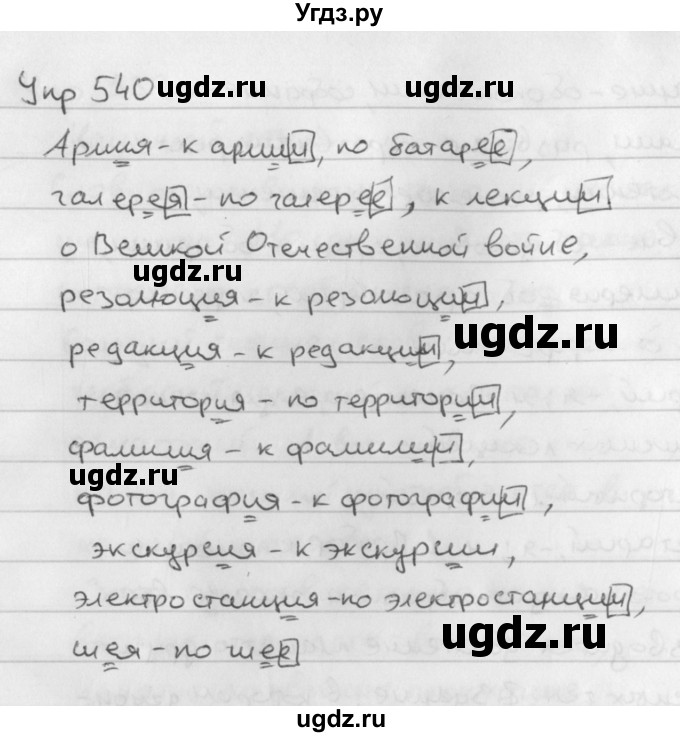 Угдз.ру
Упр 540
ugdz.ru ugdz.ru
Армия - к армии, по батарее,
галерея - по галерее, к лекции
о Великой Отечественной войне,
ugdz.ru
резолюция - к резолюции,
ugdz.ru
редакция - к редакции,
территория - по территории,
фамилия - к фамилии,
ugdz.ru
фотография - к фотографии,
экскурсия - к экскурсии,
электростанция - по электростанции,
ugdz.ru
шея - по шее
ugdz.ru
ugdz.ru